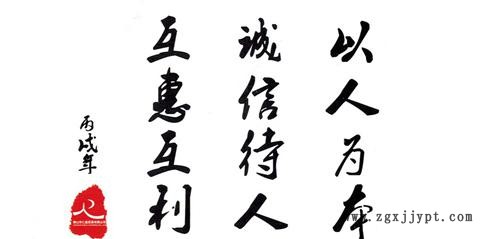 以人为本
诚信待人
互惠互利
丙戌年
www.zgxjjypt.com